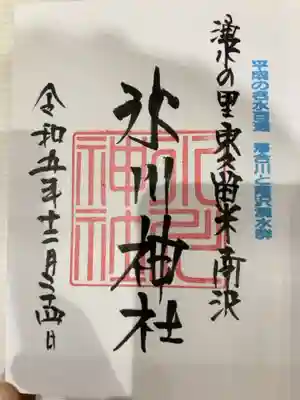 平成の名水百選 落合川と南沢湧水群
湧水の里東久留米南沢
氷川神社
氷川神社
令和五年十二月二十四日